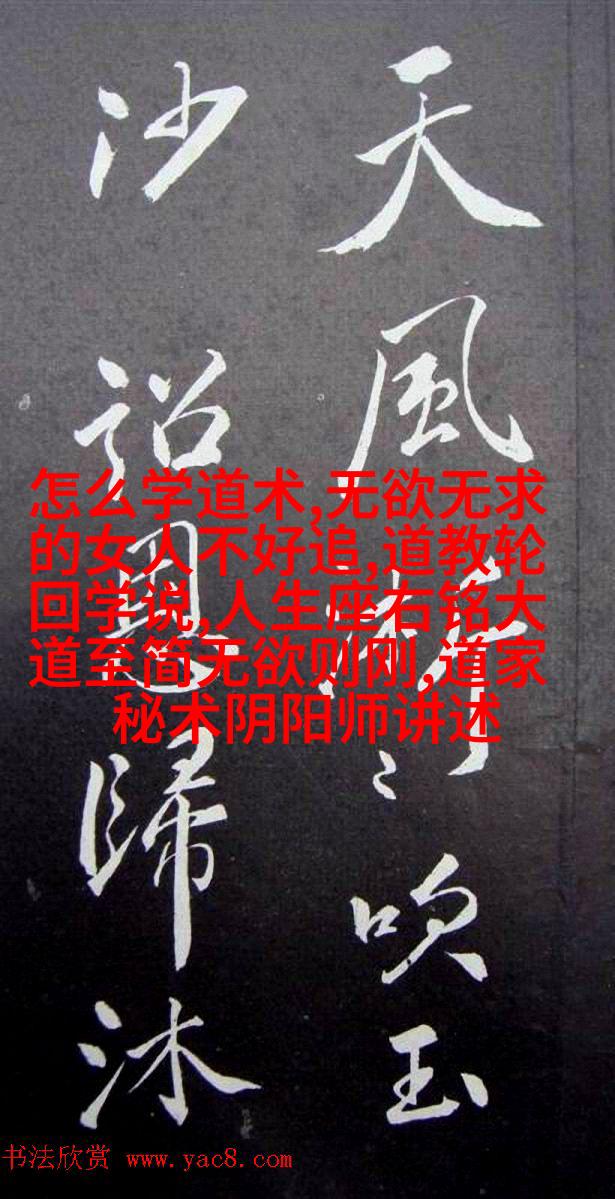 天風淅々吹玉
沙詔恩歸沐
怎么学道术,无欲无求
的女人不好追,道教轮
回学说,人生座右铭大
道至简无欲则刚,道家
秘术阴阳师讲述
书法欣赏 www.yac8.com